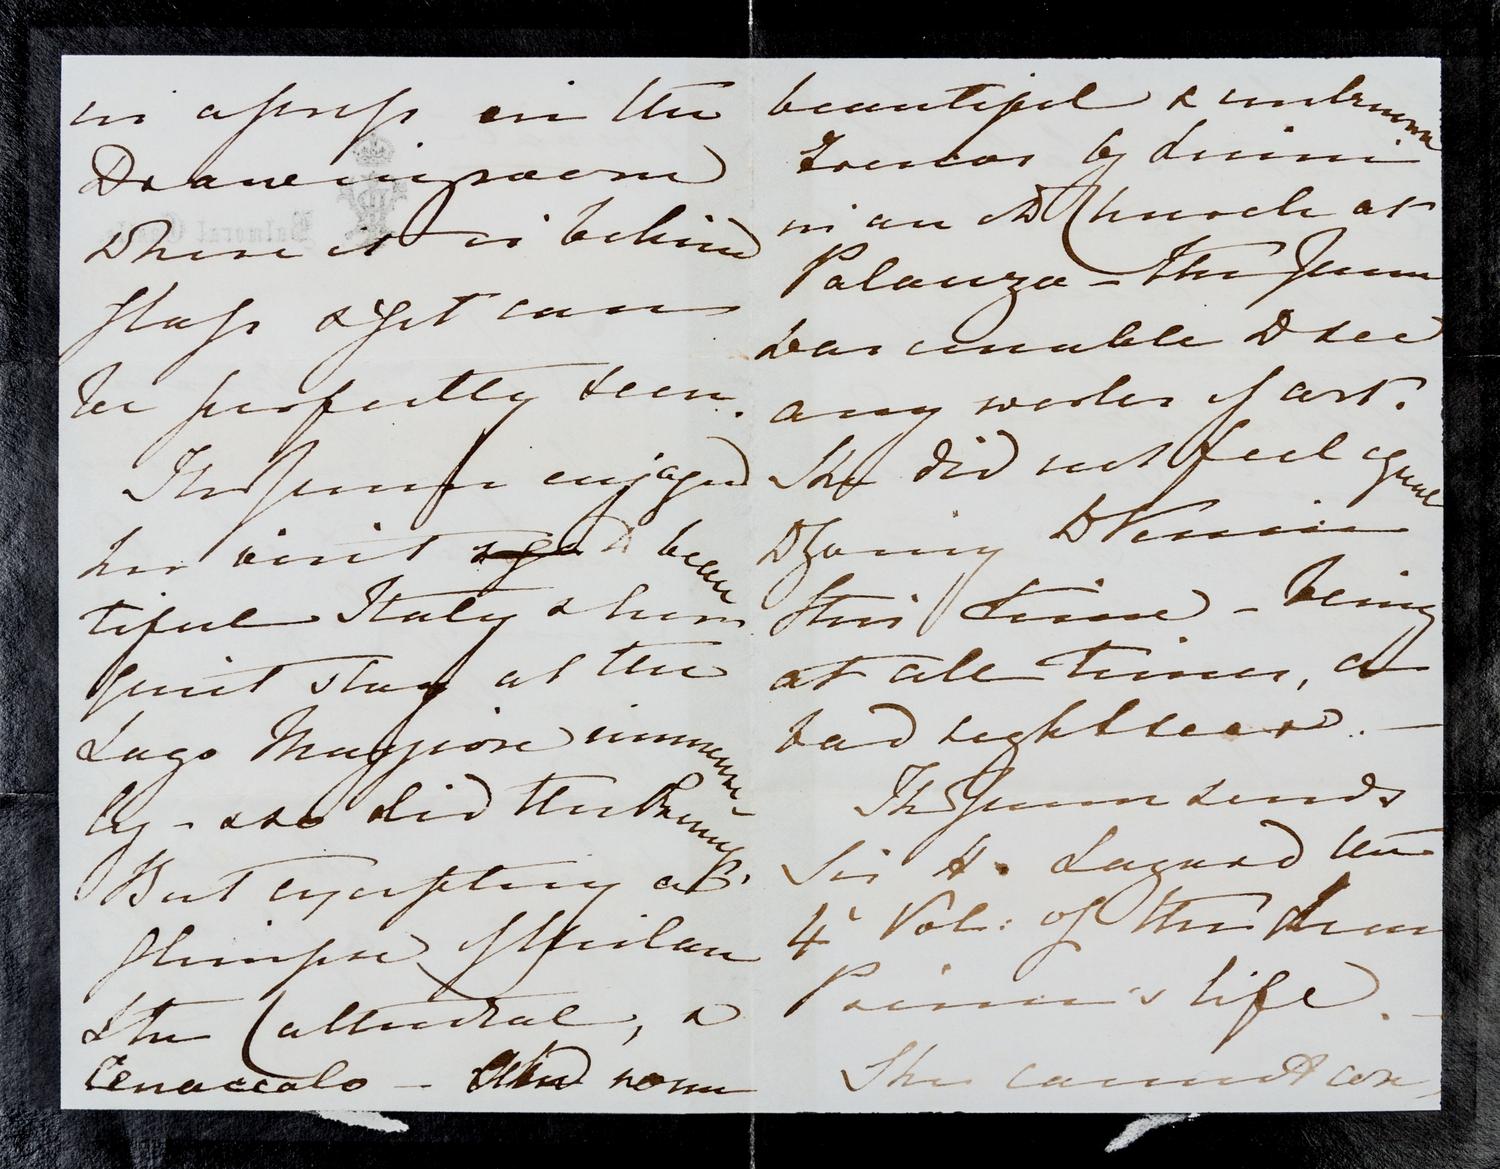 in a press in the
Drawingroom
where it is behind
glass & yet can
be perfectly seen.
The Queen enjoyed
her visit to beau
tiful Italy & her
quiet stay at the
Lago Maggiore immense
ly – & so did the Princess
But excepting a
glimpse of Milan
& the Cathedral, &
Cenaccolo – & some
beautiful & unknown
Frescos by Luini
in an old Church at
Palanza – the Queen
was unable to see
any works of art.
She did not feel equal
to going to Venice
this time – being
at all times, a
bad sightseer. –
The Queen sends
Sir H. Layard the
4th Vol: of the dear
Prince's life. –
She cannot con
Balmoral Castle